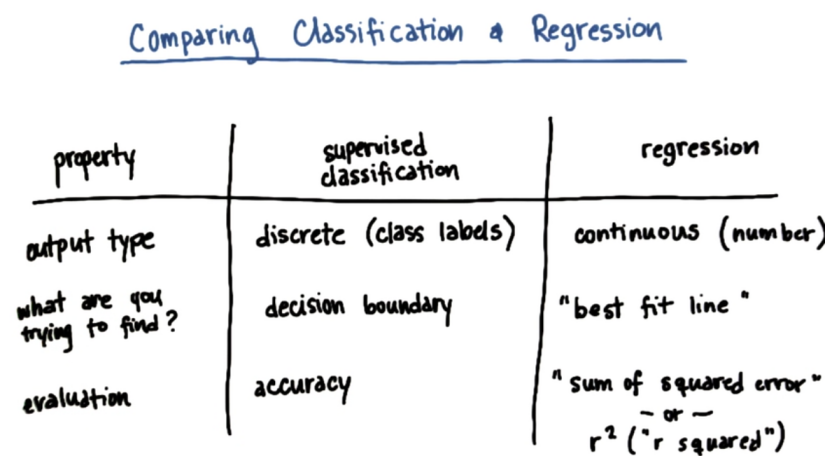 Comparing Classification & Regression
property supervised classification regression
output type discrete (class labels) continuous (number)
what are you trying to find? decision boundary "best fit line"
evaluation accuracy "sum of squared error"
- or -
r² ("r squared")